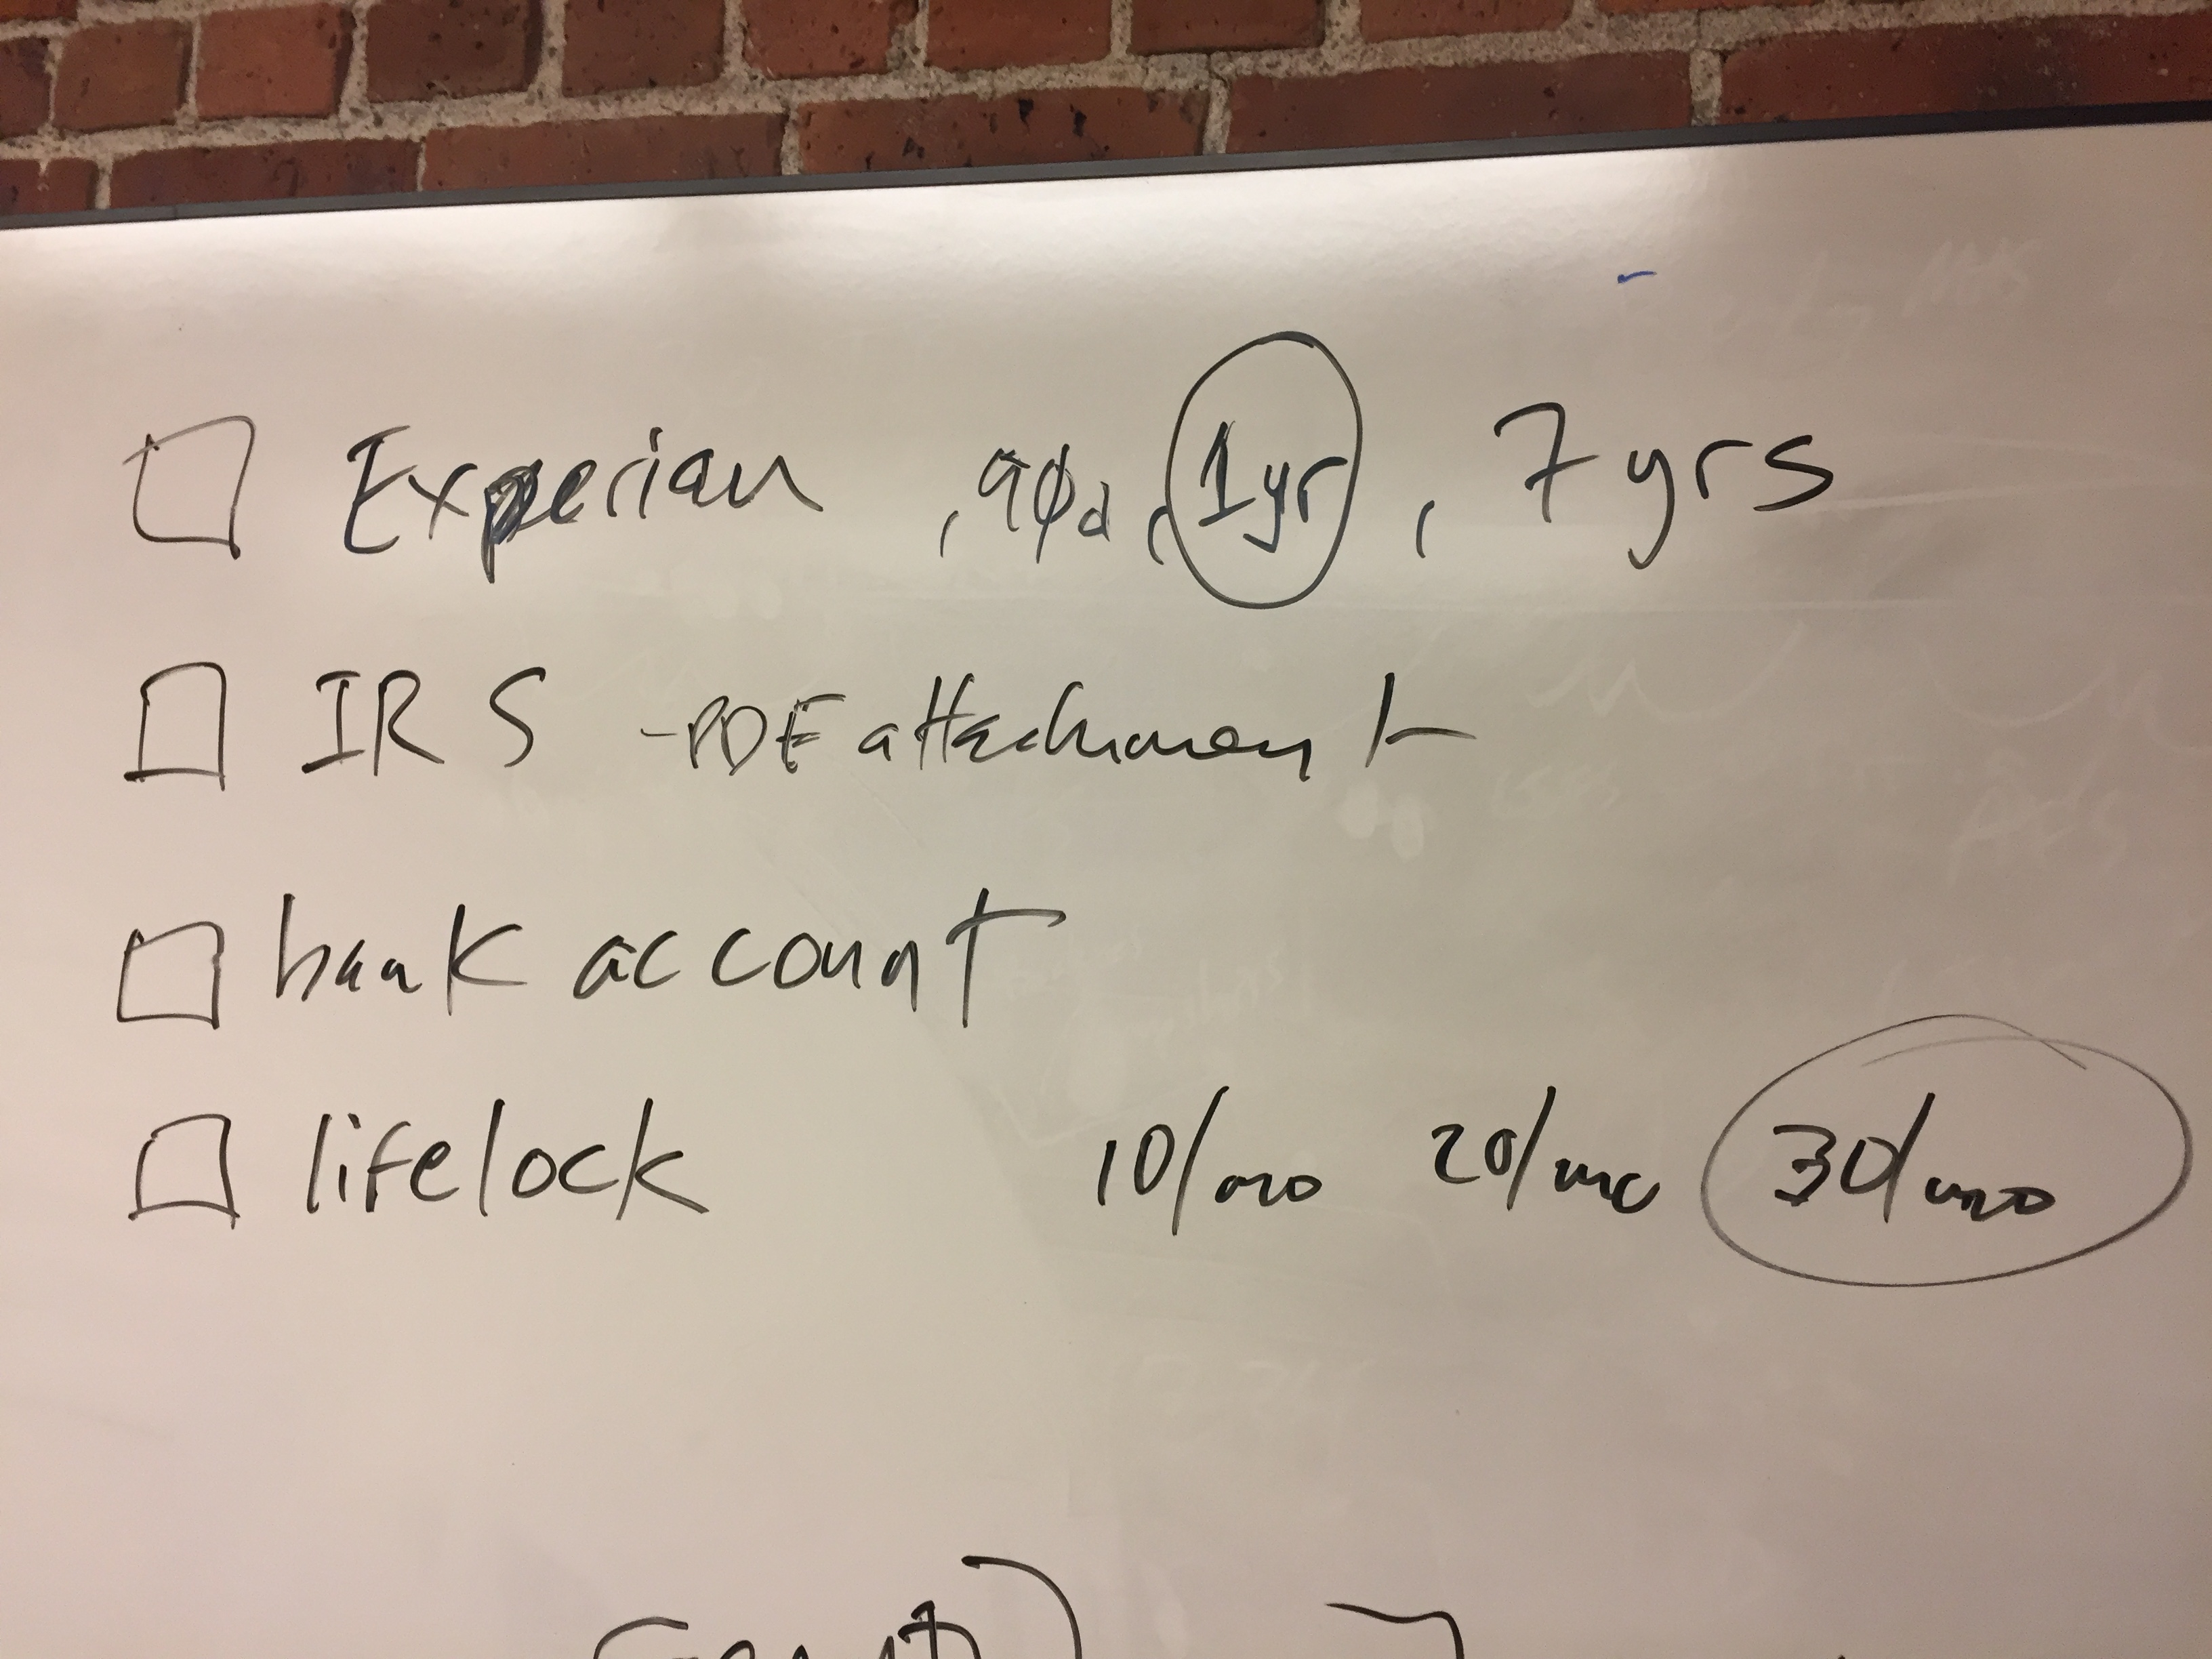 ☐ Experian , 90d, 1yr, 7 yrs
☐ IRS - PDF attachment
☐ bank account
☐ lifelock 10/mo 20/mo 30/mo